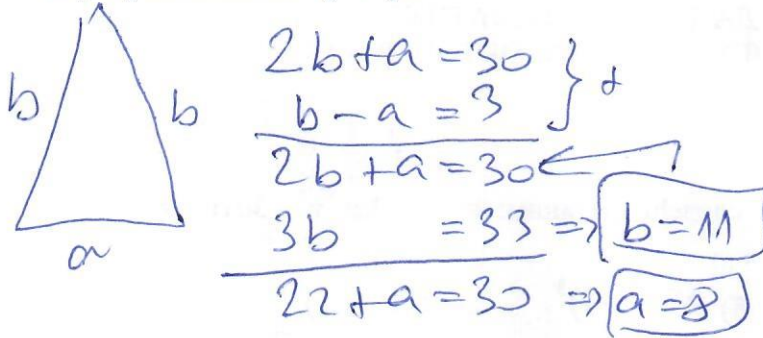 2b+a=30
b b b-a=3 } +
2b+a=30
3b =33 => b=11
a
22+a=30 => a=8